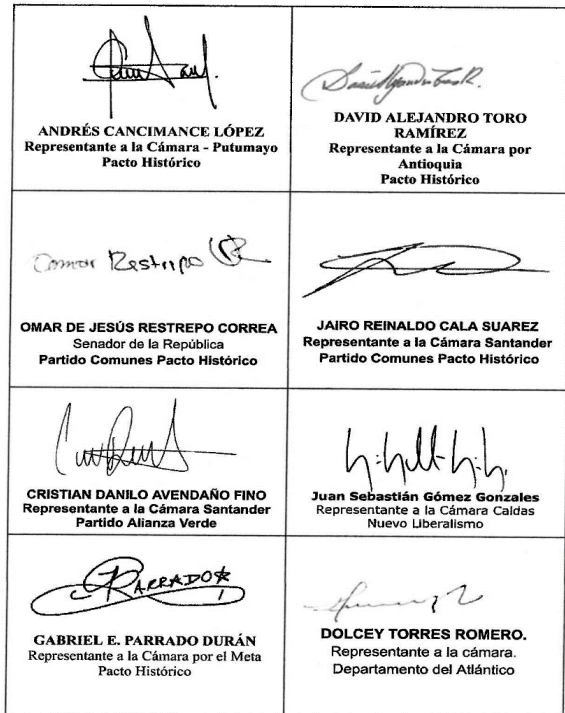 ANDRÉS CANCIMANCE LÓPEZ
Representante a la Cámara - Putumayo
Pacto Histórico
DAVID ALEJANDRO TORO
RAMÍREZ
Representante a la Cámara por
Antioquia
Pacto Histórico
Omar Restrepo
OMAR DE JESÚS RESTREPO CORREA
Senador de la República
Partido Comunes Pacto Histórico
JAIRO REINALDO CALA SUAREZ
Representante a la Cámara Santander
Partido Comunes Pacto Histórico
CRISTIAN DANILO AVENDAÑO FINO
Representante a la Cámara Santander
Partido Alianza Verde
Juan Sebastián Gómez Gonzales
Representante a la Cámara Caldas
Nuevo Liberalismo
PARRADO
GABRIEL E. PARRADO DURÁN
Representante a la Cámara por el Meta
Pacto Histórico
DOLCEY TORRES ROMERO.
Representante a la cámara.
Departamento del Atlántico